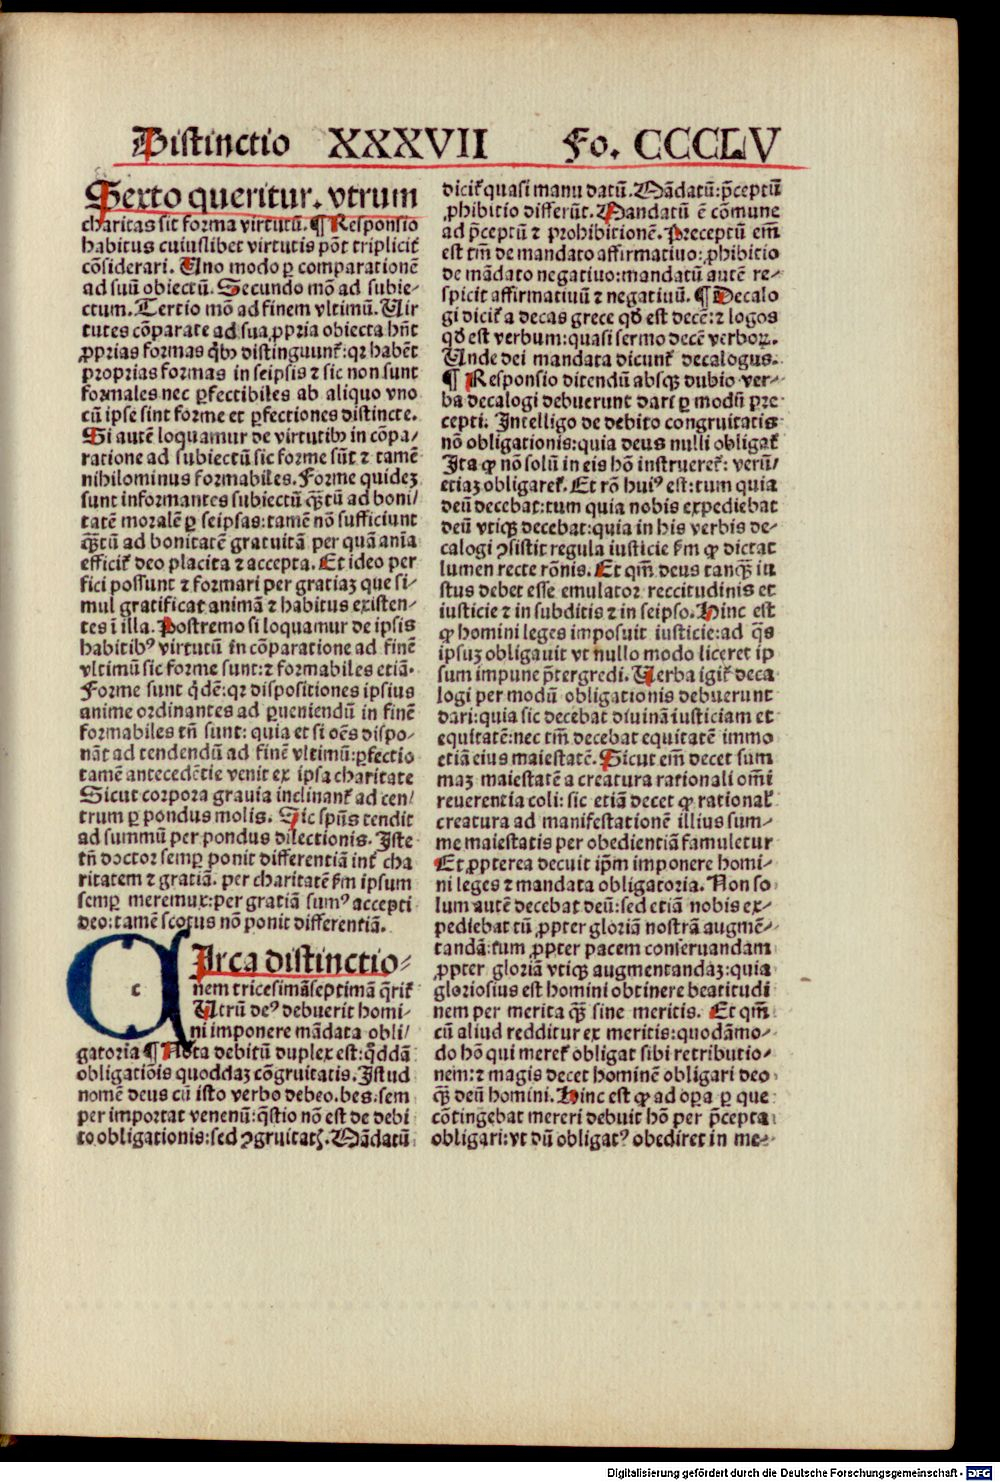 Distinctio XXXVII Fo. CCCCLV
Sexto queritur. vtrum
charitas sit forma virtutū. ¶ Responsio
habitus cuiuslibet virtutis pōt tripliciť
cōsiderari. Uno modo ꝑ comparationē
ad suū obiectū. Secundo mō ad subie-
ctum. Tertio mō ad finem vltimū. Uir
tutes cōparate ad sua ꝓpria obiecta hn̄t
ꝓprias formas qͥbꝫ distinguunť: qꝛ habēt
proprias formas in seipsis ⁊ sic non sunt
formales nec ꝑfectibiles ab aliquo vno
cū ipse sint forme et ꝑfectiones distincte.
Si autē loquamur de virtutibꝫ in cōpa/
ratione ad subiectū sic forme sūt ⁊ tamē
nihilominus formabiles. Forme quidez
sunt informantes subiectū qᷓꝫtū ad boni/
tatē moralē ꝑ seipsas: tamē nō sufficiunt
qᷓꝫtū ad bonitatē gratuitā per quā aīa
efficiť deo placita ⁊ accepta. Et ideo per
fici possunt ⁊ formari per gratiaz que si-
mul gratificat animā ⁊ habitus existen-
tes ī illa. Postremo si loquamur de ipsis
habitibꝰ virtutū in cōparatione ad finē
vltimū sic forme sunt: ⁊ formabiles etiā.
Forme sunt qͥdē: qꝛ dispositiones ipsius
anime ordinantes ad ꝑueniendū in finē
formabiles tn̄ sunt: quia et si oēs dispo-
nāt ad tendendū ad finē vltimū: ꝑfectio
tamē antecedētie venit ex ipsa charitate
Sicut corpora grauia inclinanť ad cen/
trum ꝑ pondus molis. Sic spūs tendit
ad summū per pondus dilectionis. Iste
tn̄ doctor semꝑ ponit differentiā inť cha
ritatem ⁊ gratiā. per charitatē ẜm ipsum
semꝑ meremur: per gratiā sumꝰ accepti
deo: tamē scotus nō ponit differentiā.
c
CIrca distinctio-
nem tricesimāseptimā q̄riť
Utrū deꝰ debuerit homi-
ni imponere mādata obli/
gatoria ¶ Nota debitū duplex est: qͦddā
obligatiōis quoddaz cōgruitatis. Istud
nomē deus cū isto verbo debeo. bes. sem
per importat venenū: q̄stio nō est de debi
to obligationis: sed ꝯgruitatꝭ. Mādatū
diciť quasi manu datū. Mādatū: p̄ceptū
ꝓhibitio differūt. Mandatū ē cōmune
ad p̄ceptū ⁊ prohibitionē. Preceptū em̄
est tm̄ de mandato affirmatiuo: ꝓhibitio
de mādato negatiuo: mandatū autē re-
spicit affirmatiuū ⁊ negatiuū. ¶ Decalo
gi diciť a decas grece qd̄ est decē: ⁊ logos
qd̄ est verbum: quasi sermo decē verboꝝ.
Unde dei mandata dicunť decalogus.
¶ Responsio dicendū absqꝫ dubio ver-
ba decalogi debuerunt dari ꝑ modū pre
cepti. Intelligo de debito congruitatis
nō obligationis: quia deus nulli obligať
Ita ꝙ nō solū in eis hō instruereť: verū/
etiaz obligareť. Et rō huiꝰ est: tum quia
deū decebat: tum quia nobis expediebat
deū vtiqꝫ decebat: quia in his verbis de-
calogi ꝯsistit regula iusticie ẜm ꝙ dictat
lumen recte rōnis. Et qm̄ deus tanqᷓꝫ iu
stus debet esse emulator reccitudinis et
iusticie ⁊ in subditis ⁊ in seipso. Hinc est
ꝙ homini leges imposuit iusticie: ad q̄s
ipsuꝫ obligauit vt nullo modo liceret ip
sum impune p̄tergredi. Uerba igiť deca
logi per modū obligationis debuerunt
dari: quia sic decebat diuinā iusticiam et
equitatē: nec tm̄ decebat equitatē immo
etiā eius maiestatē. Sicut em̄ decet sum
maꝫ maiestatē a creatura rationali om̄i
reuerentia coli: sic etiā decet ꝙ rational̛
creatura ad manifestationē illius sum-
me maiestatis per obedientiā famuletur
Et ꝓpterea decuit ip̄m imponere homi-
ni leges ⁊ mandata obligatoria. Non so
lum autē decebat deū: sed etiā nobis ex-
pediebat tū ꝓpter gloriā nostrā augmē-
tandā: tum ꝓpter pacem conseruandam
ꝓpter gloriā vtiqꝫ augmentandaꝫ: quia
gloriosius est homini obtinere beatitudi
nem per merita qᷓꝫ sine meritis. Et qm̄
cū aliud redditur ex meritis: quodāmo-
do hō qui mereť obligat sibi retributio-
nem: ⁊ magis decet hominē obligari deo
qᷓꝫ deū homini. Hinc est ꝙ ad oꝑa ꝑ que
cōtingebat mereri debuit hō per p̄cepta
obligari: vt dū obligatꝰ obediret in me-
Digitalisierung gefördert durch die Deutsche Forschungsgemeinschaft - DFG